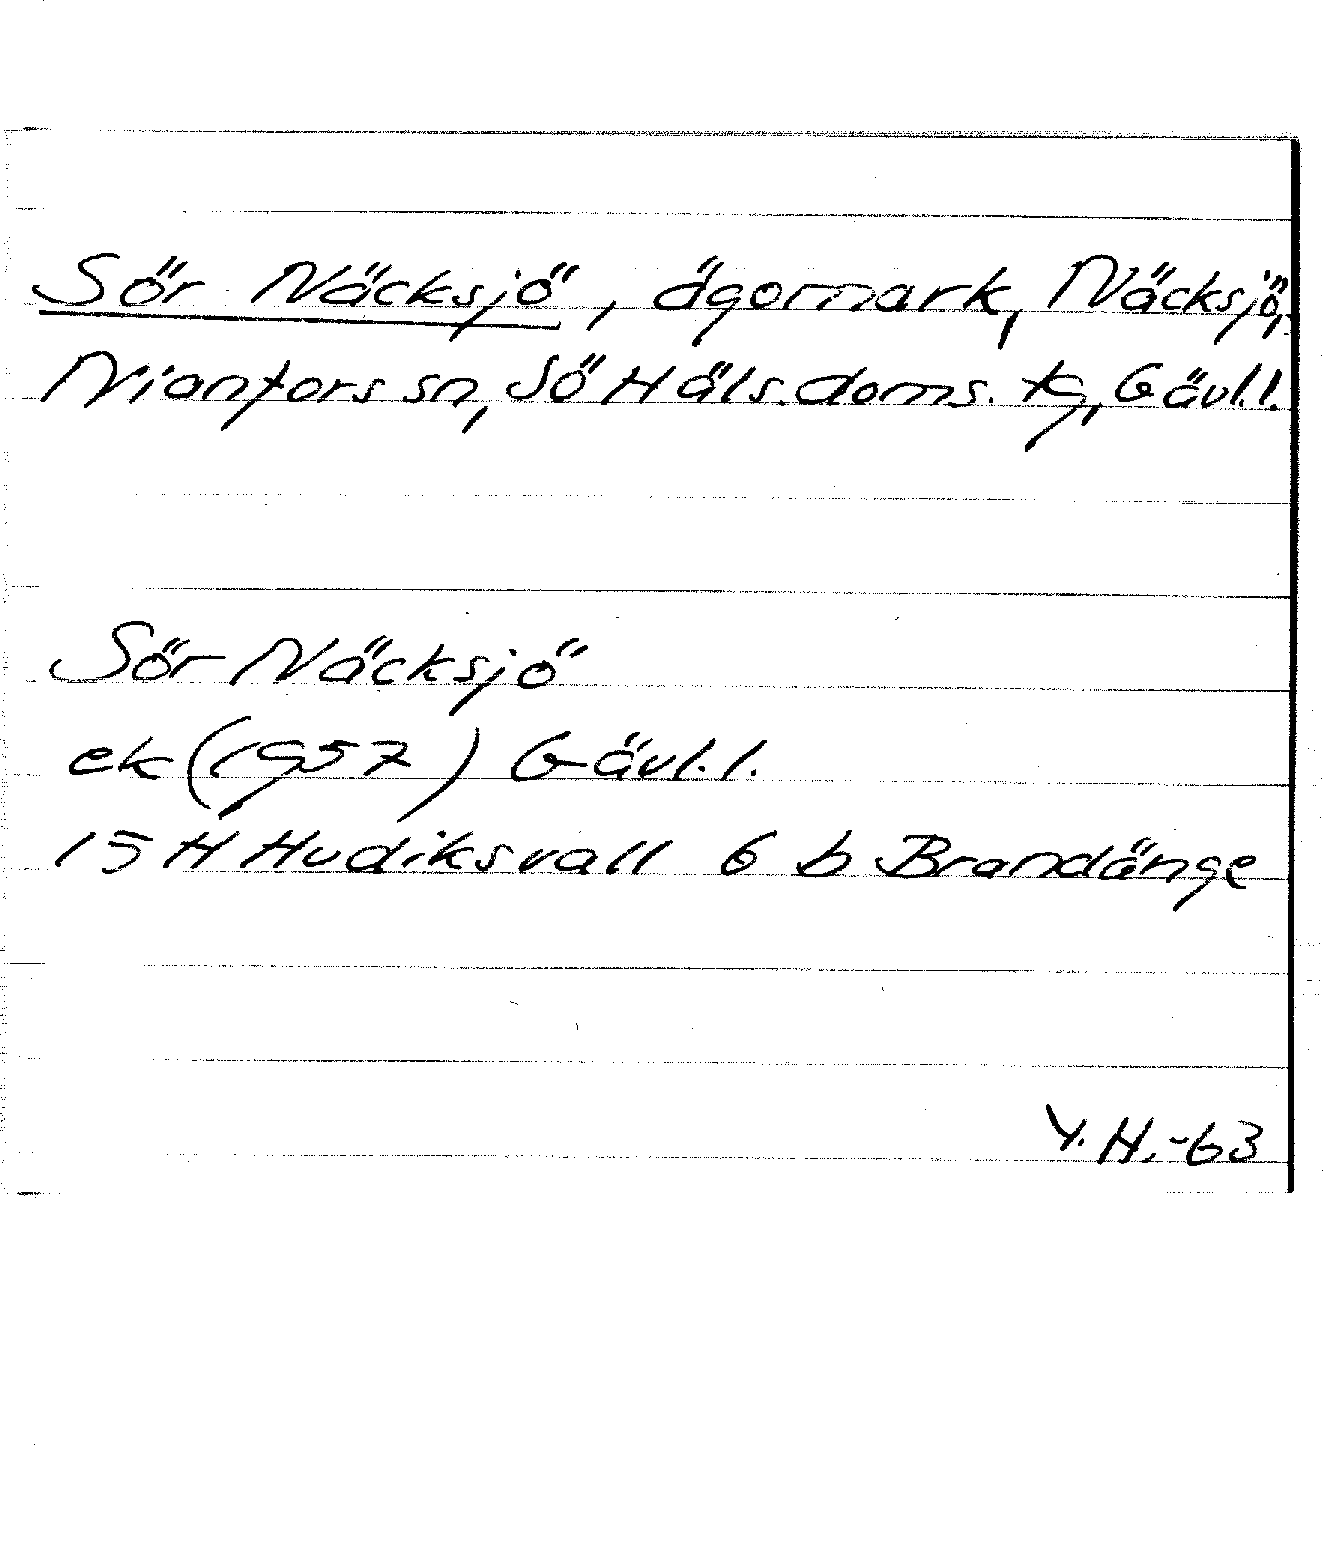 Sör Näcksjö, ägomark, Näcksjö,
Nianfors sn, Sö Häls. doms. tg, Gävl.l.
Sör Näcksjö
ek (1957) Gävl.l.
15 H Hudiksvall 6 b Brandänge
Y.H.-63